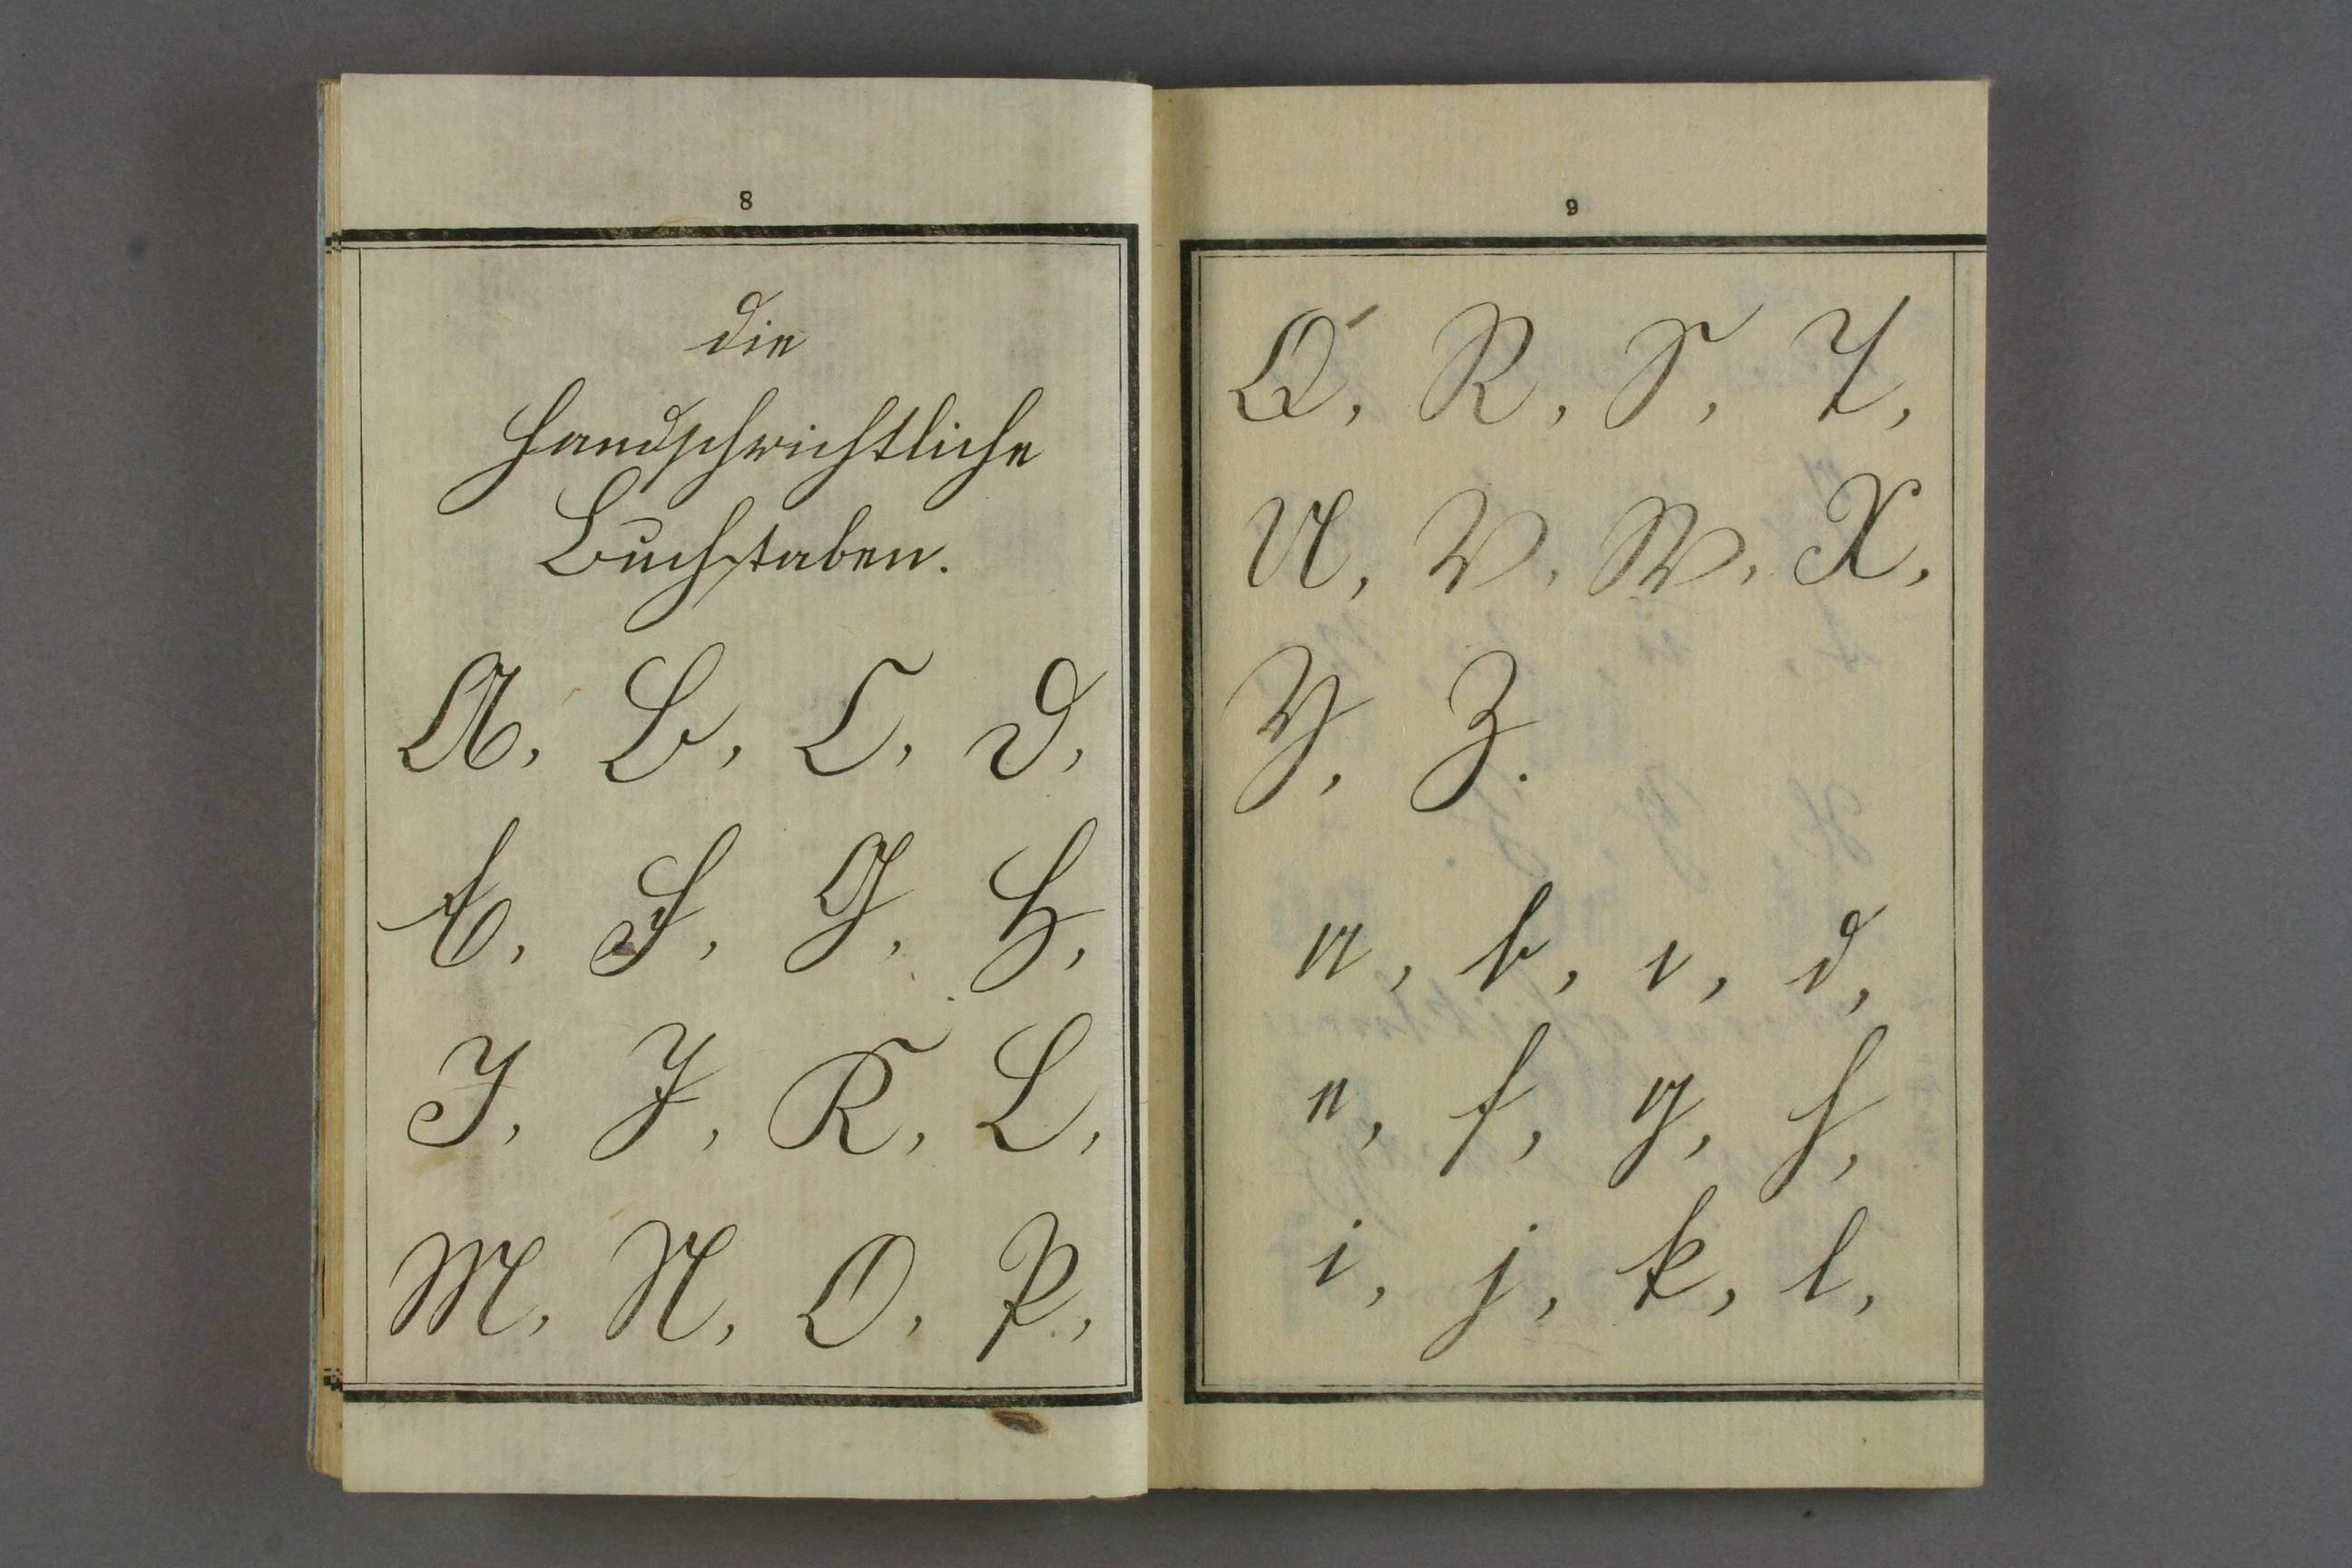 8
die
Handschrichtliche
Buchstaben.
A, B, C, D,
E, F, G, H,
I, J, K, L,
M, N, O, P,
9
Q, R, S, T,
U, V, W, X,
Y, Z.
a, b, c, d,
e, f, g, h,
i, j, k, l,